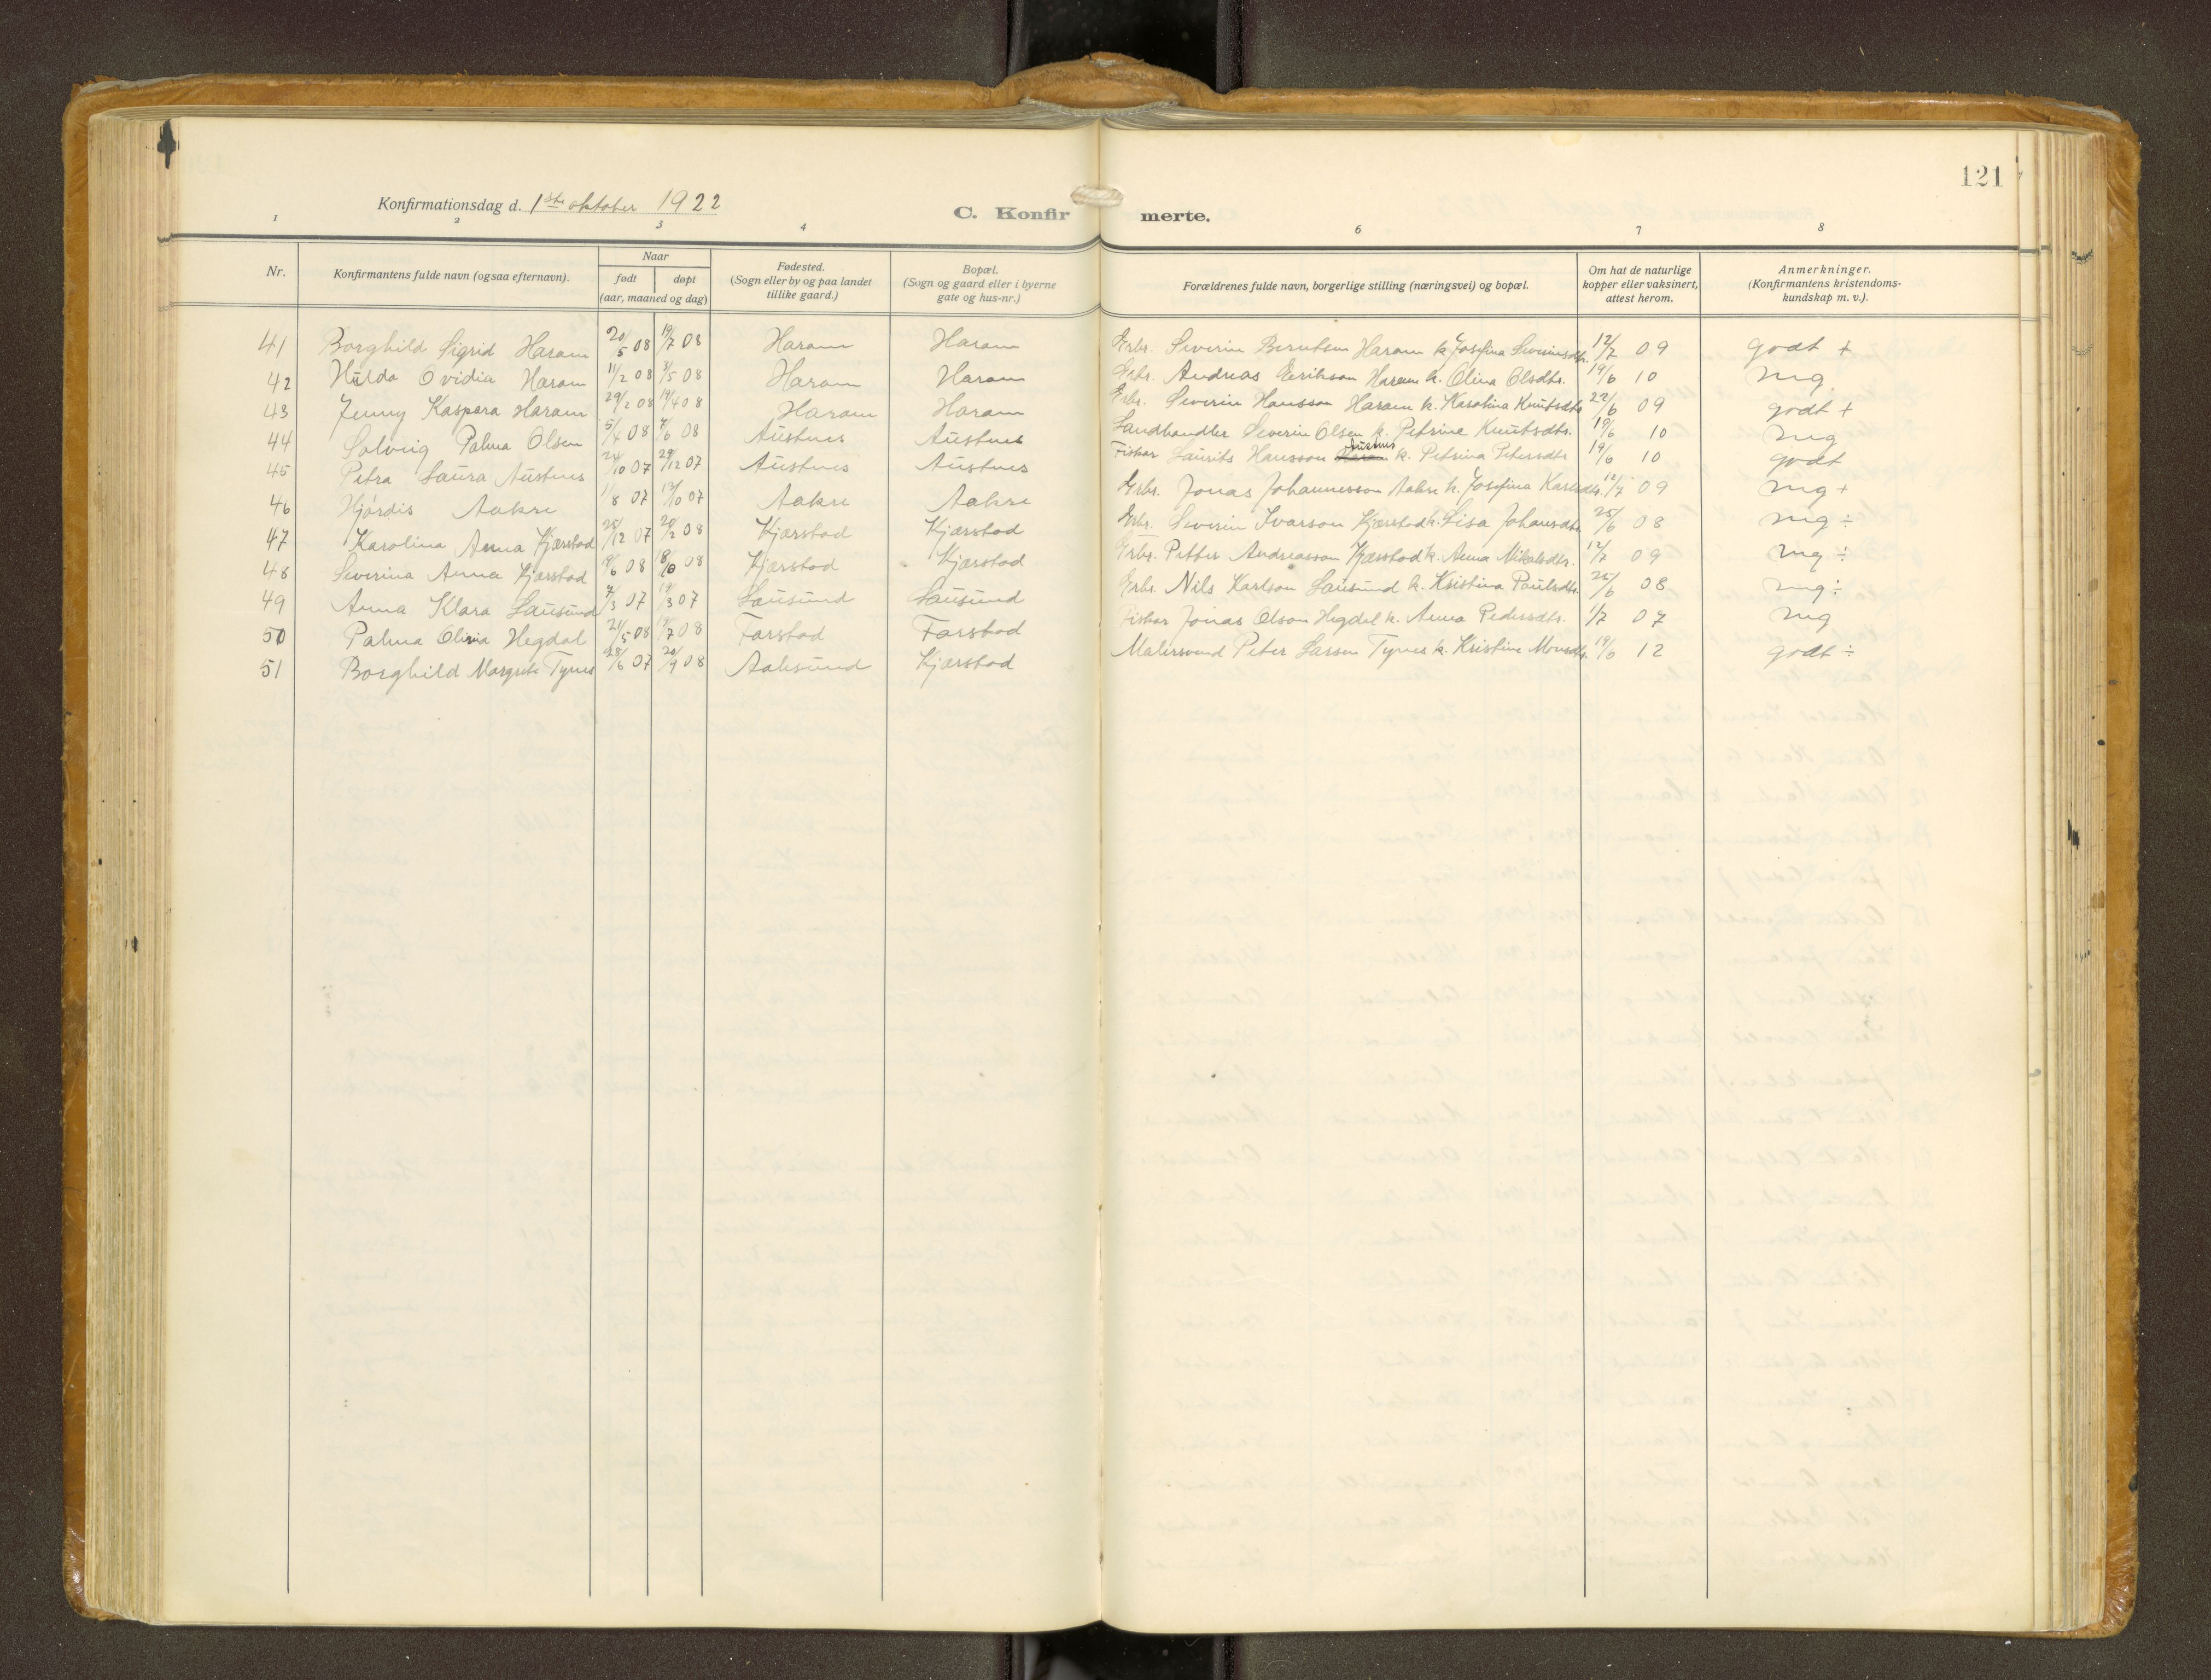 121
Konfirmationsdag d. 1ste oktober 1922
C. Konfirmerte.
1 2 3 4 6 7 8
Nr. Konfirmantens fulde navn (ogsaa efternavn). Naar født døpt (aar, maaned og dag) Fødested. (Sogn eller by og paa landet tillike gaard.) Bopæl. (Sogn og gaard eller i byerne gate og hus-nr.) Forældrenes fulde navn, borgerlige stilling (næringsvei) og bopæl. Om hat de naturlige kopper eller vaksinert, attest herom. Anmerkninger. (Konfirmantens kristendoms-kundskap m. v.).
41 Borghild Sigrid Haram 20/5 08 19/7 08 Haram Haram Grbr. Severin Berntsen Haram k. Josefina Severinsdtr. 12/7 09 godt +
42 Hilda Ovidia Haram 11/2 08 3/5 08 Haram Haram Grbr. Andreas Eerikson Haram k. Olina Olsdtr. 19/6 10 mg
43 Jenny Kaspara Haram 29/2 08 19/4 08 Haram Haram Grbr. Severin Hansson Haram k. Karolina Knutsdtr. 22/6 09 godt +
44 Solveig Palma Olsen 5/4 08 7/6 08 Austnes Austnes Landhandler Severin Olsen k. Petrine Knutsdtr. 19/6 10 mg
45 Petra Laura Austnes 24/10 07 29/12 07 Austnes Austnes Fiskar Laurits Hansson Haram Austnes k. Petrina Petersdtr 19/6 10 godt
46 Hjördis Aakre 1/8 07 13/10 07 Aakre Aakre Grbr. Jonas Johannesson Aakre k. Josefina Karlsdtr. 12/7 09 mg +
47 Karolina Anna Kjærstad 25/12 07 20/2 08 Kjærstad Kjærstad Grbr. Severin Ivarson Kjærstad k. Lisa Johansdtr. 25/6 08 mg ÷
48 Severina Anna Kjærstad 19/6 08 18/10 08 Kjærstad Kjærstad Grbr. Petter Andreasson Kjærstad k. Anna Nikolsdtr. 12/7 09 mg ÷
49 Anna Klara Lausund 7/3 07 19/3 07 Lausund Lausund Grbr. Nils Karlson Lausund k. Kristina Paulsdtr. 25/6 08 mg ÷
50 Palma Olivia Hegdal 21/5 08 19/7 08 Farstad Farstad Fiskar Jonas Olson Hegdal k. Anna Pedersdtr. 1/7 07 mg
51 Borghild Margrete Tynes 28/6 07 20/9 08 Aalesund Kjærstad Malersvend Peter Larsen Tynes k. Kristine Monsdtr. 19/6 12 godt ÷